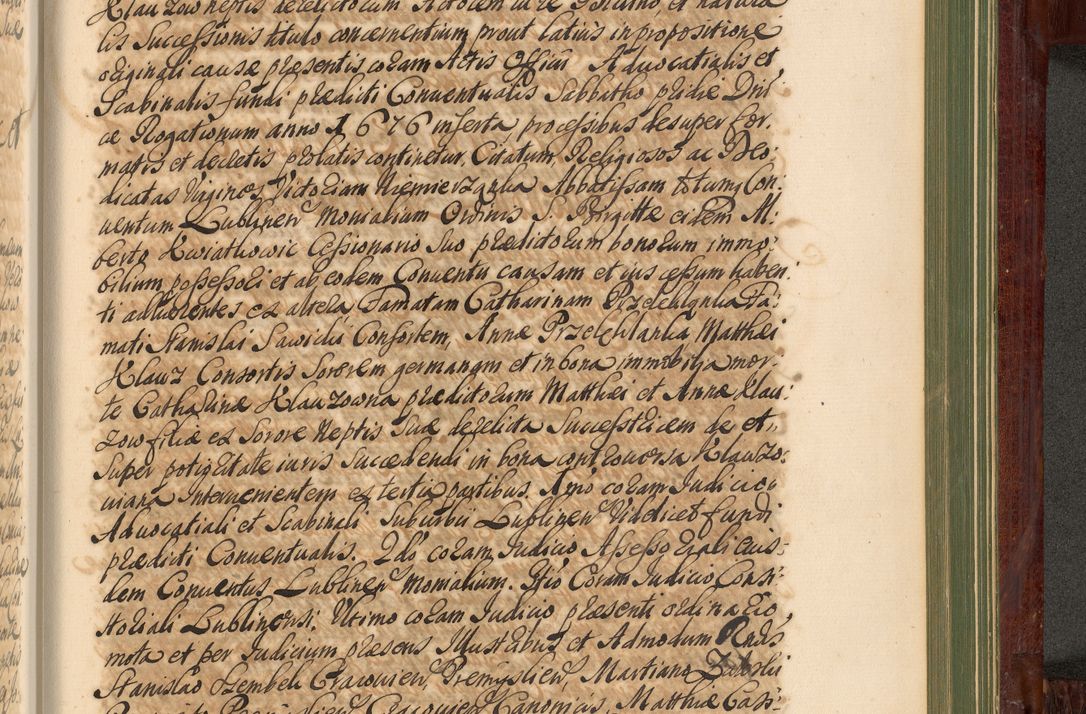 Klauzow neptis derelictorum Actorem iure Polamo et natura
lis Successionis titulo concernentium, prout latius in propositione
originali causæ præsentis, coram Actis Officii Advocatialis et
Scabinalis fundi prædicti Conventualis Sabbatho pridie Dni
cæ Rogationum anno 1676 inserta processibus desuper for,
matis et decretis prolatis continetur. Citatum, Religiosos ac Deo,
dicatas Virgines, Victoriam Niemierzanka Abbatissam totumq Con
ventum Lublinen Monialium Ordinis S. Brigittæ eidem Al:
berto Kwiatkowic Cessionario suo prædictorum bonorum immo,
bilium possessori et ab eodem Conventu causam et ius cessum haben:
ti adhærentes ex altera Famatam Catharinam Przechlanka Fa:
mati Stanislai Sawicki Consortem, Annæ Przechlanka Matthæi
Klauz Consortis Sororem germanam et in bona immobilia mor,
te Catharinæ Klauzowna prædictorum Matthæi et Annæ Klau:
zow filiæ ex Sorore Neptis suæ derelicta Successtricem de et,,
super potioritate iuris succedendi in bona controversa Klauzo:
viana Intervenientem ex tertia partibus. Amo coram Iudicio
Advocatiali et Scabinali Suburbii Lublinen Videlicet fundi
prædicti Conventualis. 2do coram Iudicio Assessoriali eius:
dem Conventus Lublinen Monialium. 3tio Coram Iudicio Consi
storiali Lublinensi. Ultimo coram Iudicio præsenti ordinario
mota et per Iudicium præsens Illustribus et Admodum Rndis
Stanislao Szembek Cracovien, Premyslien, Martiano
Cracovien Canonicis, Matthia Casi-